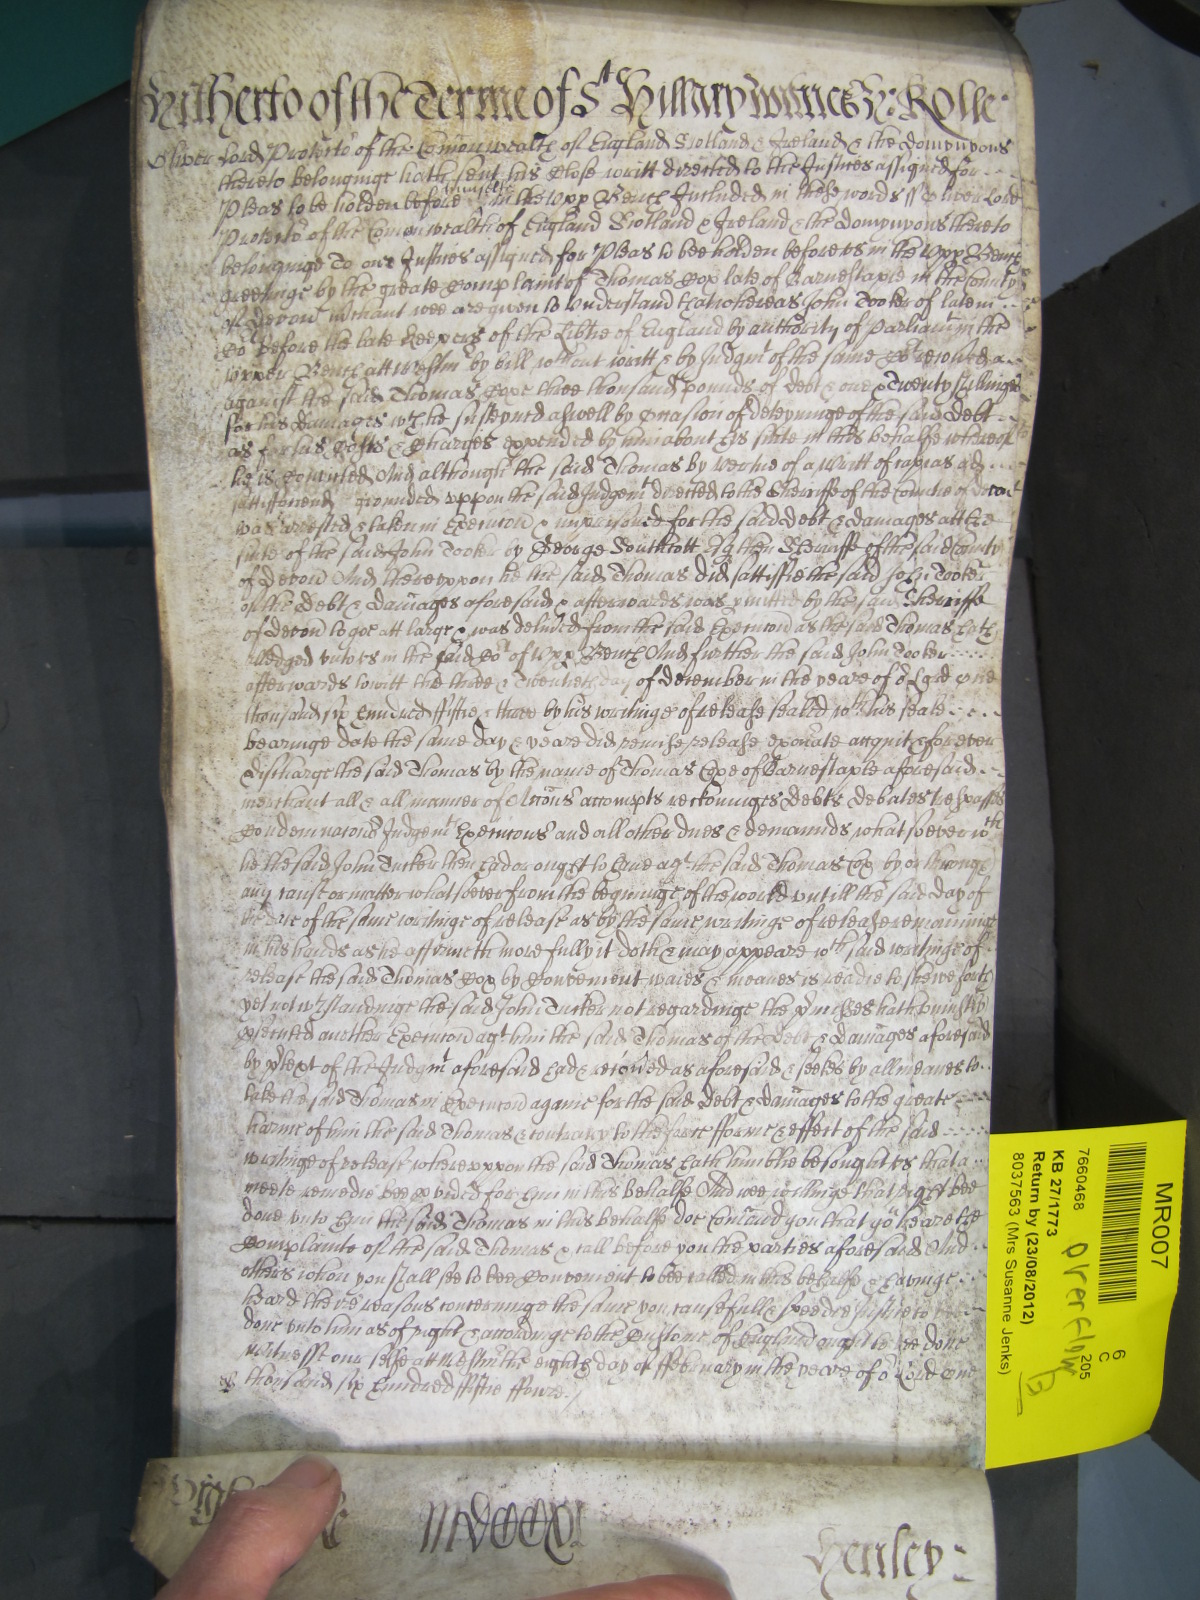 Hitherto of the Terme of St Hillary wittnes H: Rolle
Oliver Lord Protecto of the Comonwealth of England Scotland & Ireland & the Domynyons
thereto belonginge hath sent his Close writt directed to the Justices assigned for
Pleas to be holden before himselfe in the Upp Bench Included in these words ss Oliver Lord
Protecto of the Comonwealth of England Scotland & Ireland & the Domynyons thereto
belonginge To our Justices assigned for Pleas to bee holden before us in the Upp Bench
greetinge by the greate Complaint of Thomas Cox late of Barnestaple in the County
of Devon Merchant wee are given to understand that whereas John Tooker of late in
Co before the late Keepers of the Libtie of England by authority of Parliamt in the
upper Bench att Westm by bill without writt & by Judgmt of the same Cot recoved
against the said Thomas Coxe three thousand pounds of debt & one & Twenty shillings
for his damages wch he susteyned aswell by occasion of deteyninge of the said Debt
as for his Costs & Charges expended by him about his suite in this behalfe whereof
he is convicted And although the said Thomas by vertue of a Writt of capias ad
sattisfaciend grounded uppon the said Judgemt directed to the Sherriffe of the County of Devon
was arrested & taken in Execucon & imprisoned for the said Debt & damages att the
suite of the said John Tooker by George Southcott Esq then Sherriffe of the said County
of Devon And thereuppon he the said Thomas did sattisfie the said John Tooker
of the Debt & damages aforesaid & afterwards was pmitted by the said Sherriffe
of Devon to goe att large & was delived from the said Execucon as the said Thomas hath
alledged unto us in the said Cot of Upp Bench And further the said John Tooker
afterwards towitt the three & Twentieth day of December in the yeare of or Lord one
thousand six hundred fiftie & three by his writinge of release sealed wth his seale
bearinge date the same day & yeare did remise release exonate acquit & for ever
discharge the said Thomas by the name of Thomas Coxe of Barnestaple aforesaid
merchant all & all manner of Accons accompts reckoninges Debts debates trespasses
Condemnacons Judgemts Execucons and all other dues & demaunds whatsoever wch
he the said John Tucker then had or ought to have agt the said Thomas Cox by or through
any cause or matter whatsoever from the beginninge of the world untill the said day of
the date of the same writinge of release as by the same writinge of release remaininge
in his hands as he affirmeth more fully it doth & may appeare wch said writinge of
release the said Thomas Cox by Convenient waies & meanes is readie to shewe forth
yet notwthstandinge the said John Tucker not regardinge the pmisses hath
psecuted another Execucon agt him the said Thomas of the Debt & damages aforesaid
by ptext of the Judgmt aforesaid had & recoved as aforesaid & seekes by all meanes to
take the said Thomas in Execucon againe for the said Debt & damages to the greate
harme of him the said Thomas & contrary to the force forme & effect of the said
writinge of release whereuppon the said Thomas hath humblie besought us that a
meete remedie bee pvided for him in this behalfe And wee willinge that right bee
done unto him the said Thomas in this behalfe doe Comaund you that you heare the
Complainte of the said Thomas & call before you the parties aforesaid And
others whom you shall see to bee Convenient to bee called in this behalfe & havinge
heard theire reasons concerninge the same you cause full & speedie Justice to
done unto him as of right & accordinge to the Custome of England ought to bee done
wittnesse our selfe att Westm the eighth day of February in the yeare of or Lord one
thousand six hundred fiftie fowre
Henley
MR007
7660468
6
C
205
KB 27/1773
Return by (23/08/2012)
8037563 (Mrs Susanne Jenks)
Overflow
B